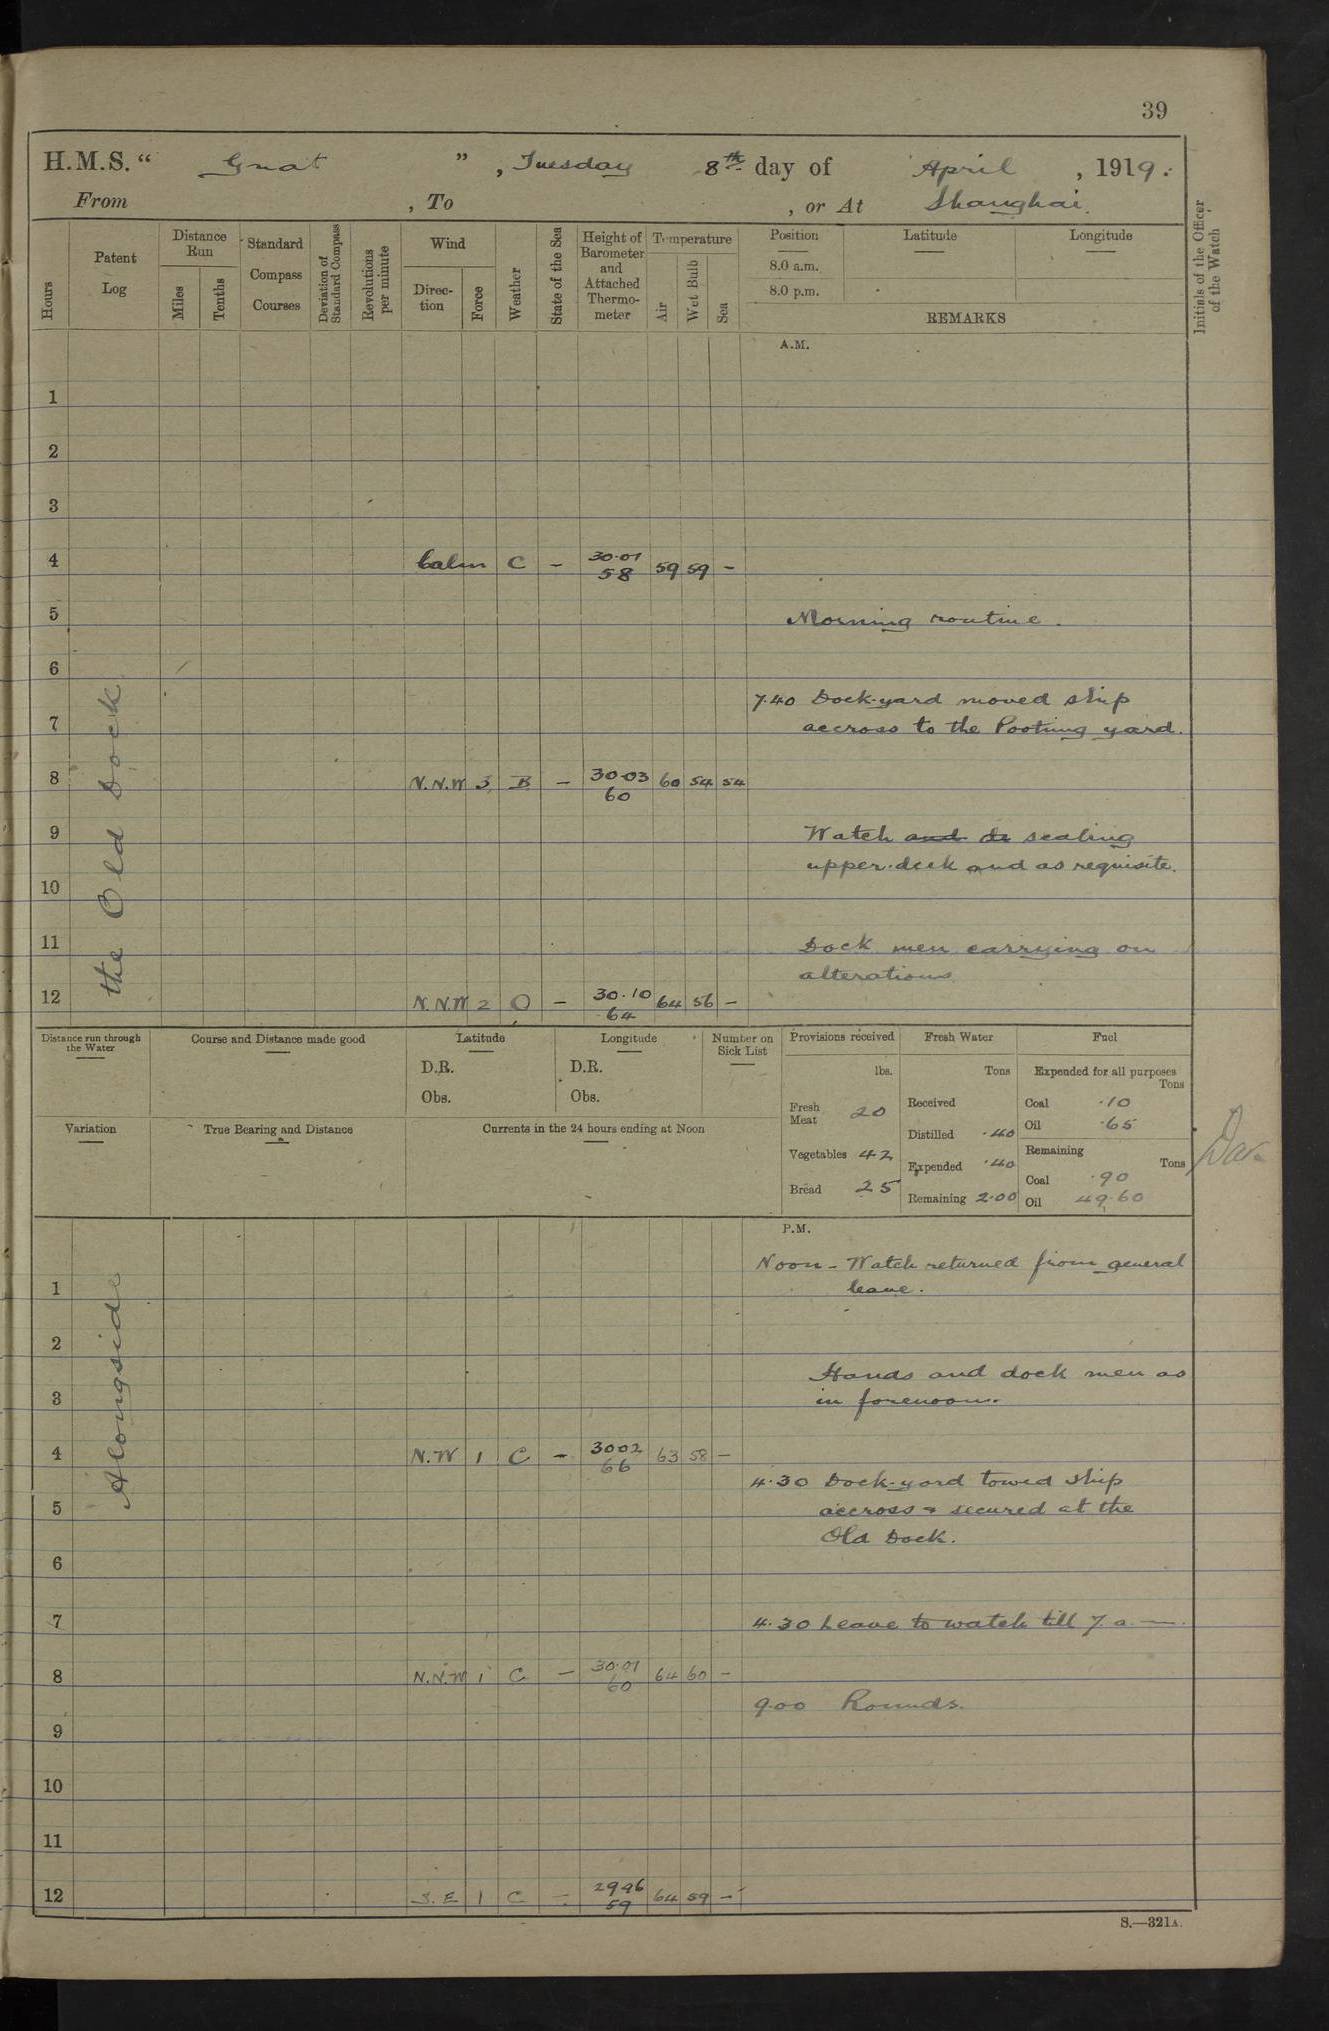 39
H.M.S. “ Gnat ”, Tuesday 8th day of April, 1919.
From , To , or At Shanghai.
Hours
Patent Log
Distance Run
Miles
Tenths
Standard Compass Courses
Deviation of Standard Compass
Revolutions per minute
Wind
Direction
Force
Weather
State of the Sea
Height of Barometer and Attached Thermometer
Temperature
Air
Wet Bulb
Sea
Position
Latitude
Longitude
8.0 a.m.
8.0 p.m.
REMARKS
Initials of the Officer of the Watch
A.M.
1
2
3
4 Calm C – 30.01 58 59 59 –
5 Morning routine.
6
7.40 Dock-yard moved ship
7 accross to the Pootung yard.
8 N.N.W 3 B – 30.03 60 60 54 54
9 Watch and de scaling
upper-deck and as requisite.
10
11 Dock men carrying on
alterations
12 N.N.W 2 O – 30.10 64 64 56 –
the Old Dock
Distance run through the Water
Course and Distance made good
Latitude
D.R.
Obs.
Longitude
D.R.
Obs.
Number on Sick List
Variation
True Bearing and Distance
Currents in the 24 hours ending at Noon
Provisions received
lbs.
Fresh Meat 20
Vegetables 42
Bread 25
Fresh Water
Tons
Received
Distilled .40
Expended .40
Remaining 2.00
Fuel
Expended for all purposes
Tons
Coal .10
Oil .65
Remaining
Tons
Coal .90
Oil 49.60
P.M.
Noon – Watch returned from general
1 leave.
2
Hands and dock men as
3 in forenoon.
4 N.W 1 C – 3002 66 63 58 –
4.30 Dock-yard towed ship
5 accross & secured at the
Old Dock.
6
7 4.30 Leave to watch till 7 a —
8 N.N.W 1 C – 30.01 60 64 60 –
9.00 Rounds.
9
10
11
12 S.E 1 C – 2996 59 64 59 –
Alongside
S.—321A.